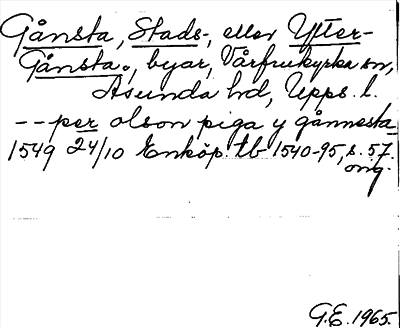 Gånsta, Stads-, eller Ytter-
Gånsta, byar, Vårfrukyrka sn,
Åsunda hd, Upps. l.
-- per olson piga y gånnesta
1549 24/10 Enköp. tb 1540-95, s. 57.
orig.
G.E. 1965.